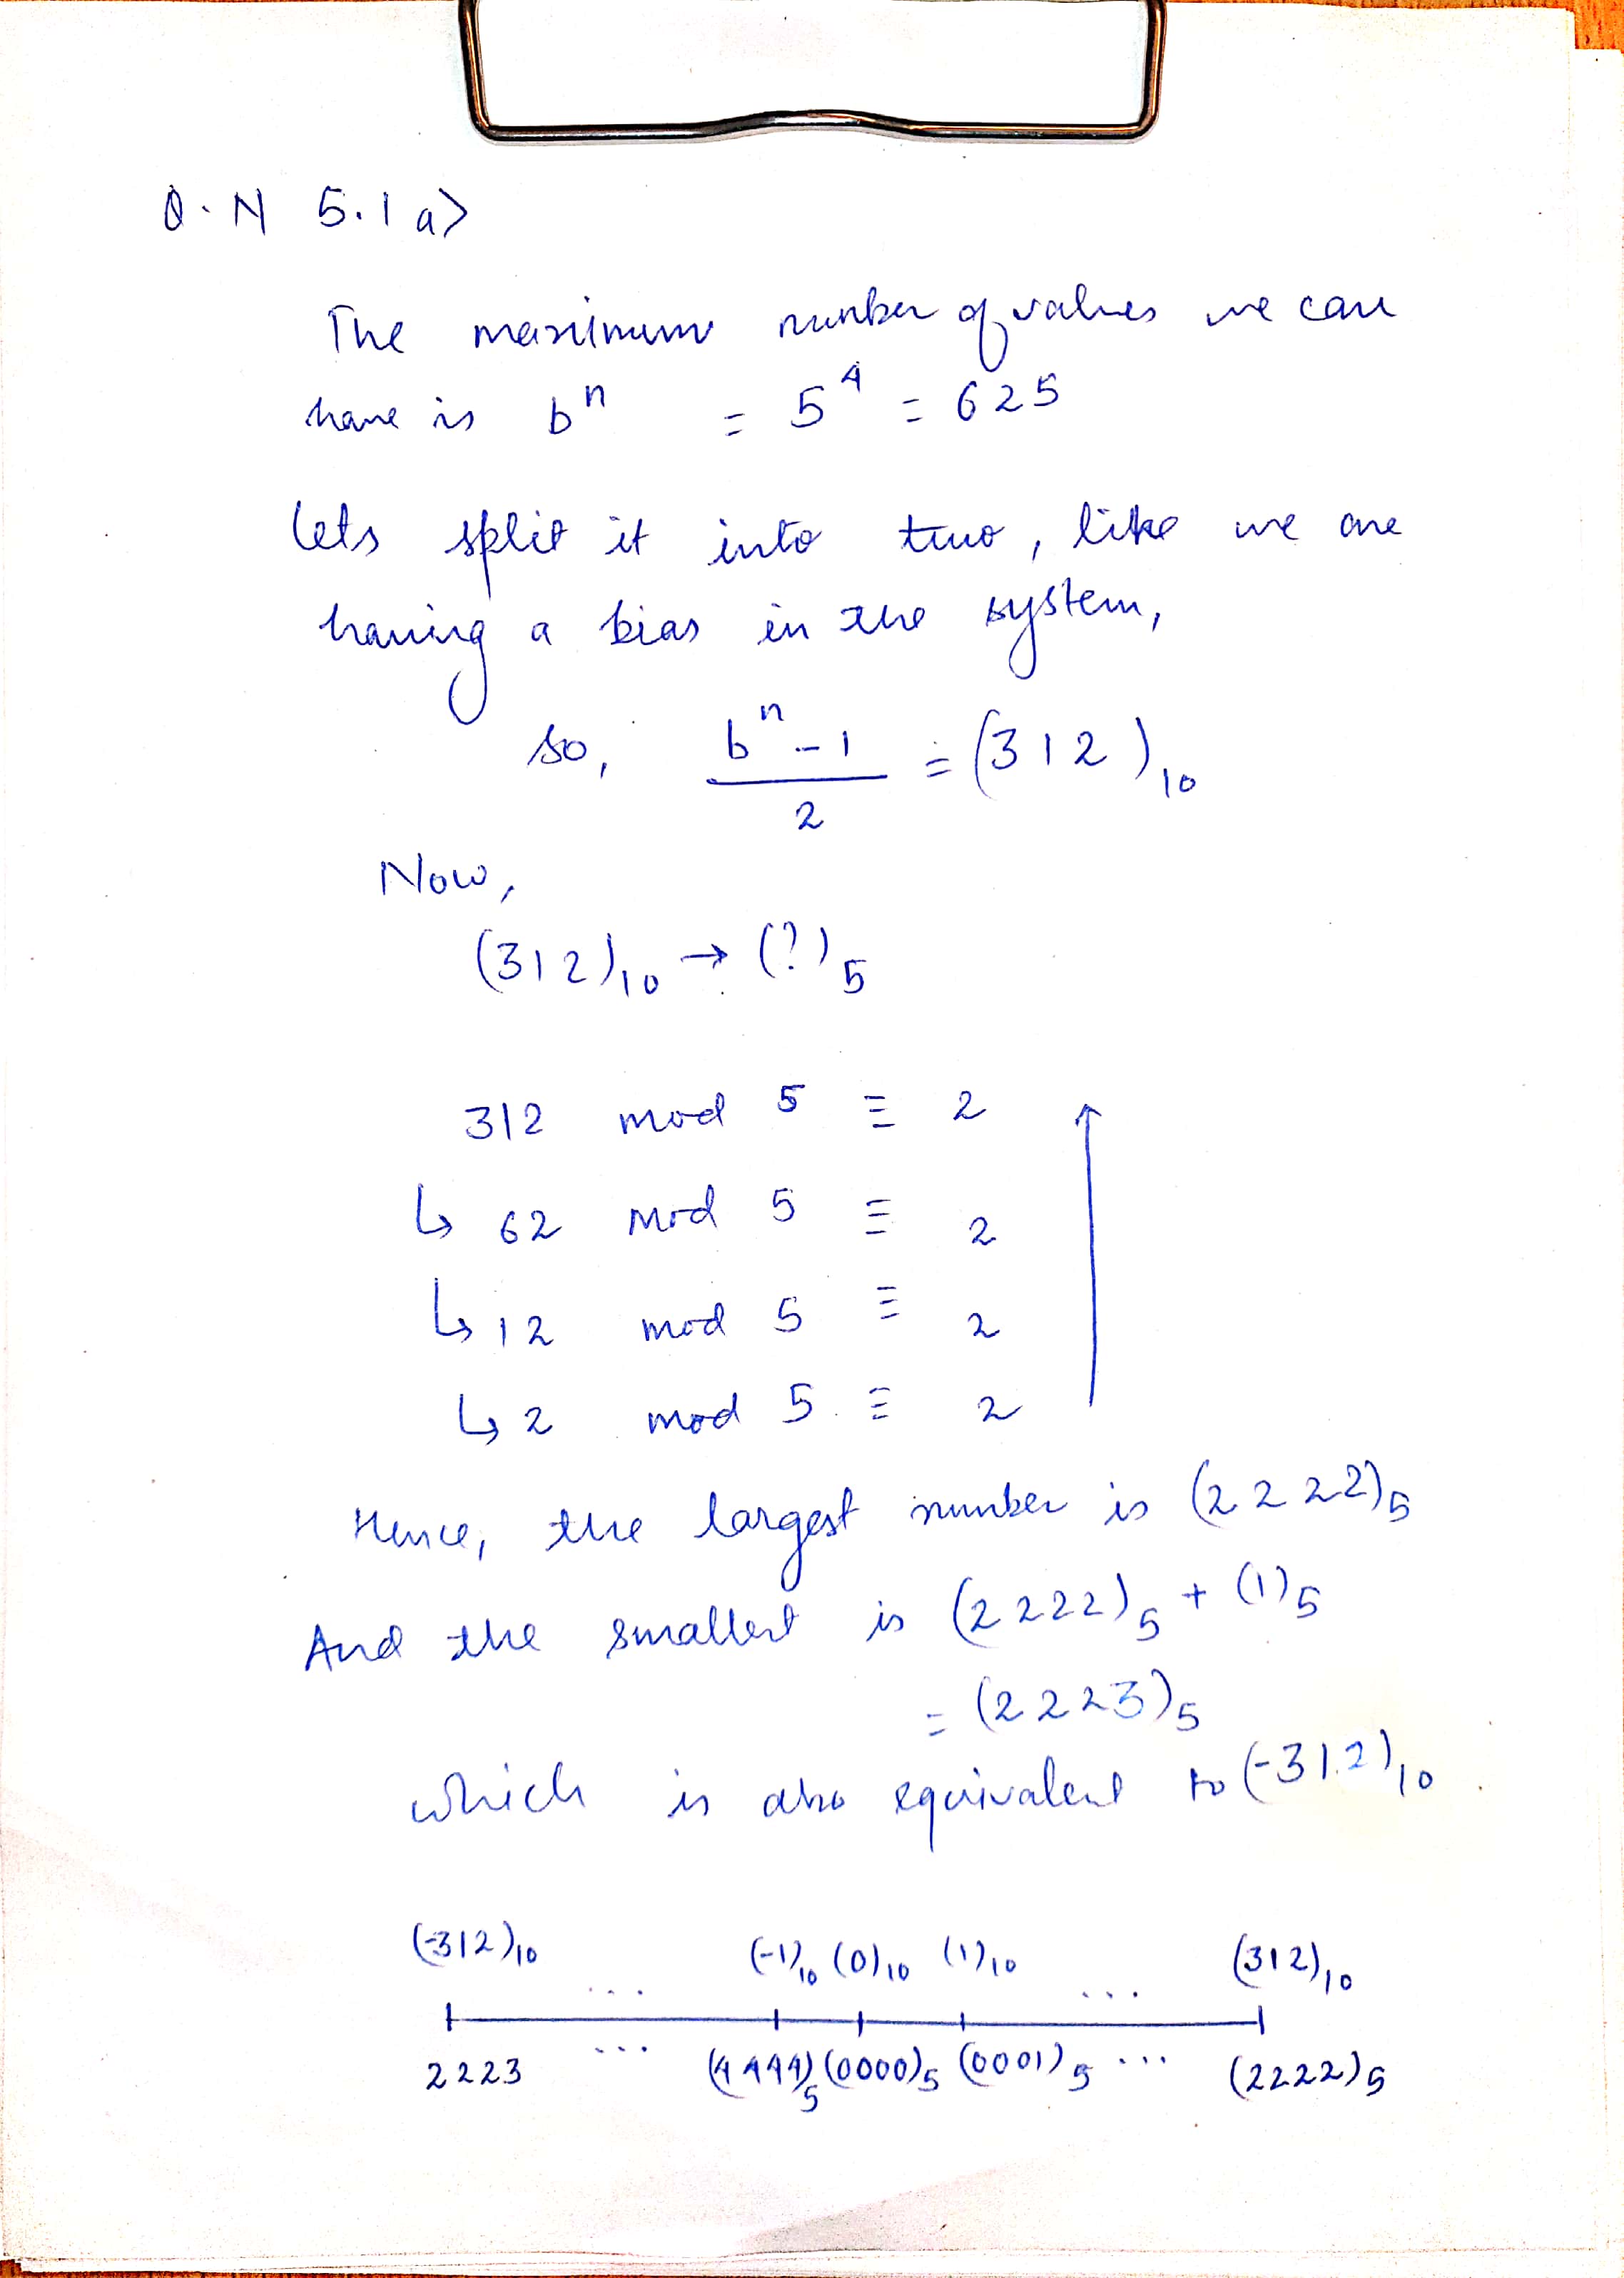 Q.N 5.1 a>
The maximum number of values we can
have is bⁿ = 5⁴ = 625
lets split it into two, like we are
having a bias in the system,
so, (bⁿ - 1) / 2 = (312)₁₀
Now,
(312)₁₀ → (?)₅
312 mod 5 ≡ 2
↳ 62 mod 5 ≡ 2
↳ 12 mod 5 ≡ 2
↳ 2 mod 5 ≡ 2
Hence, the largest number is (2222)₅
And the smallest is (2222)₅ + (1)₅
= (2223)₅
which is also equivalent to (-312)₁₀.
(-312)₁₀ ... (-1)₁₀ (0)₁₀ (1)₁₀ ... (312)₁₀
2223 ... (4444)₅ (0000)₅ (0001)₅ ... (2222)₅